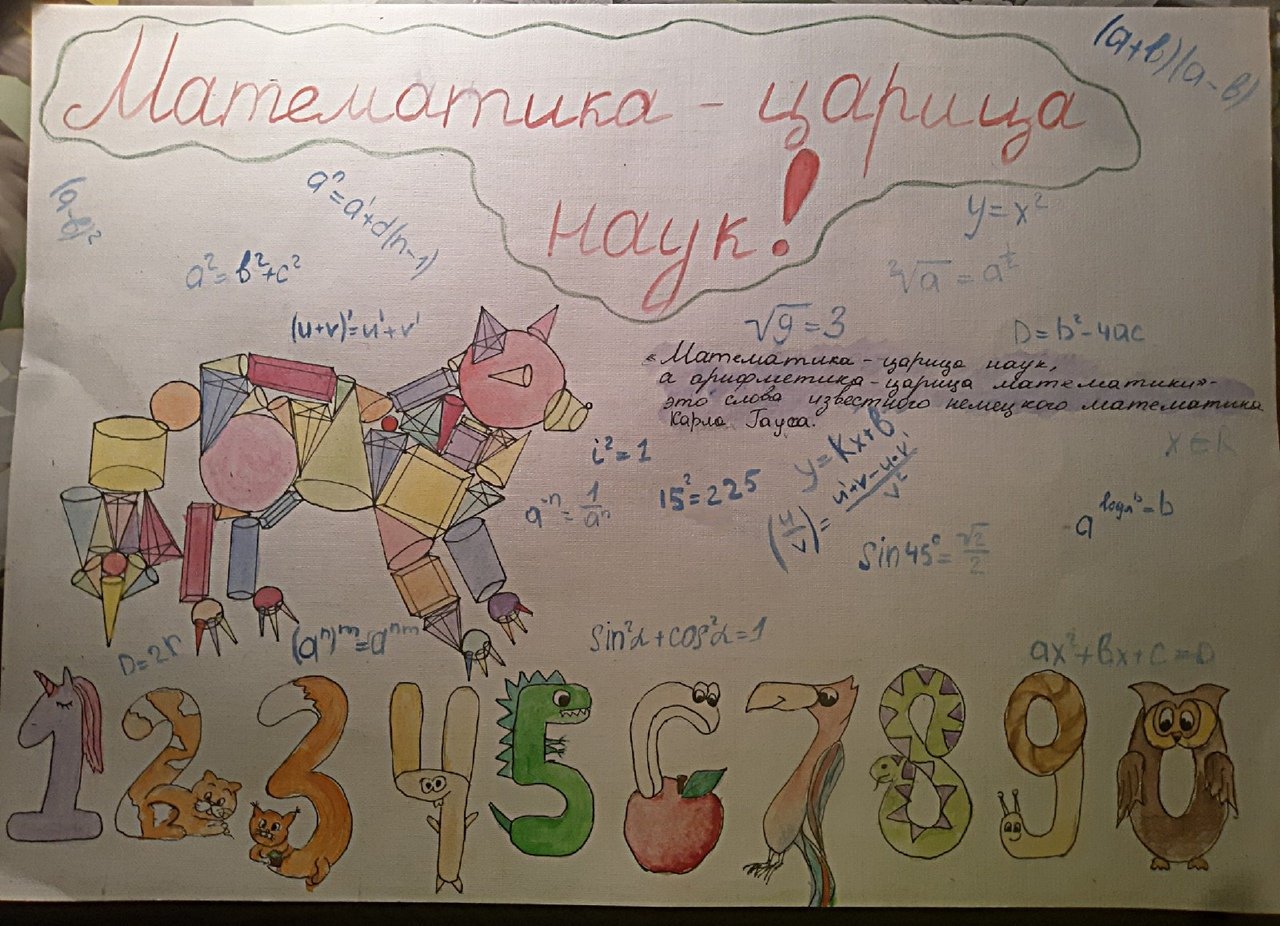 Математика - царица
наук!
(а+в)(а-в)
(а-в)²
aⁿ=a¹+d(n-1)
y=x²
a²=в²+c²
²√a = a^½
(u+v)'=u'+v'
√9=3
D=b²-4ac
«Математика - царица наук,
а арифметика - царица математики» -
это слова известного немецкого математика
Карла Гауса.
y=kx+b
x∈R
i²=1
15²=225
a⁻ⁿ=1/aⁿ
(u/v)'=
sin45°=√2/2
(aⁿ)ᵐ=aⁿᵐ
sin²α+cos²α=1
D=2r
ax²+вx+c=0
1 2 3 4 5 6 7 8 9 0